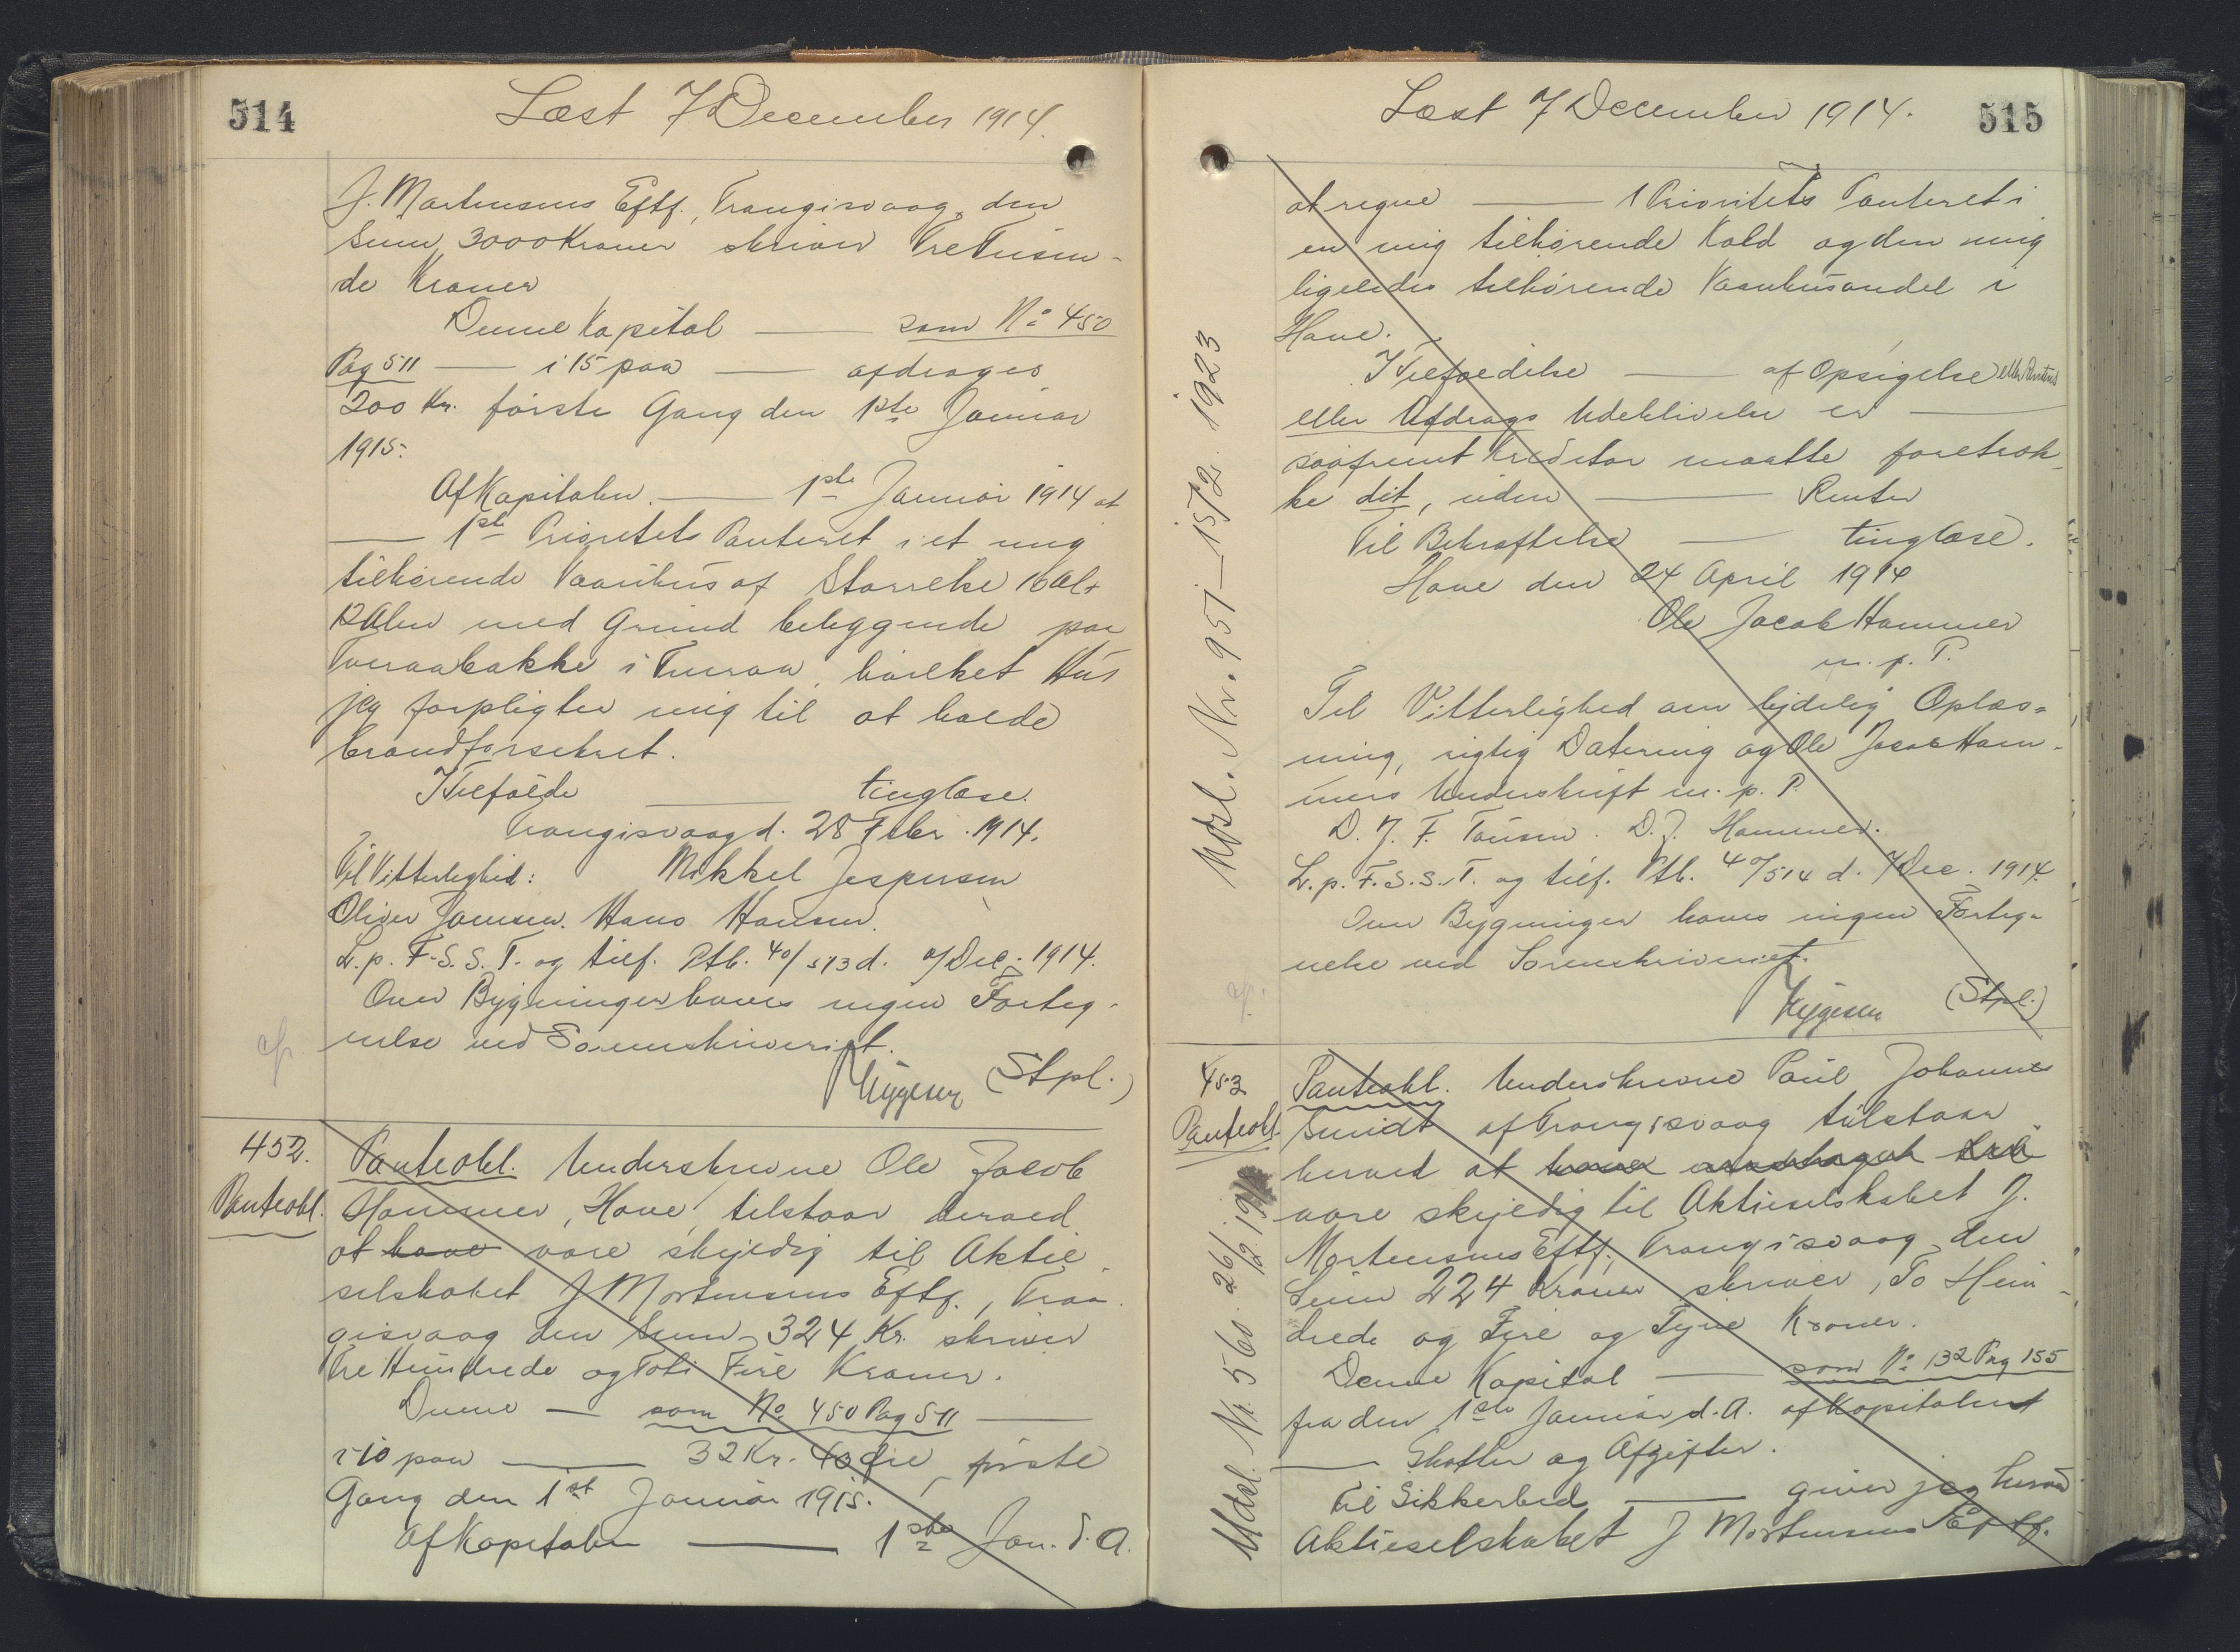 514
Læst 7 December 1914.
J. Mortensens Eftf., Trangisvaag, den
Sum 3000 Kroner skriver Tre Tusin-
de Kroner
Denne Kapital — som No 450
Pag 511 — i 15 paa — afdrages
200 Kr. første Gang den 1ste Januar
1915.
Af Kapitalen — 1ste Januar 1914 at
— 1ste Prioritets Panteret i et mig
tilhørende Vaanhus af Størrelse 16 Al. +
12 Alen med Grund beliggende paa
i Tveraa, hvilket Hus
jeg forpligter mig til at holde
brandforsikret.
I Tilfælde — tinglæse.
Trangisvaag d. 28 Febr. 1914.
Til Vitterlighed: Mikkel Jespersen
Oliver Joensen. Hans Hansen.
L. p. F. S. S. T. og tilf. Ptb. 40/513 d. 7/Dec. 1914.
Over Bygninger haves ingen Forteg-
nelse ved Sorenskriveriet.
(Stpl.)
452.
Panteobl.
Panteobl. Underskrevne Ole Jacob
Hammer, Hove, tilstaar herved
at have være skyldig til Aktie-
selskabet J Mortensens Eftf., Tran-
gisvaag den Sum 324 Kr. skriver
Tre Hundrede og Toti Fire Kroner.
Denne — som No 450 Pag 511 —
i 10 paa — 32 Kr. 40 Øre, første
Gang den 1st Januar 1915.
Af Kapitalen — 1ste Jan. d. A.
Læst 7 December 1914.
515
at regne — 1 Prioritets Panteret i
en mig tilhørende Kald og den mig
ligeledes tilhørende Vaanhusandel i
Hove.
I Tilfældelse — af Opsigelse eller Rentens
eller Afdrags Udeblivelse er —
saafremt Kreditor maatte foretræk-
ke det, uden — Renter
Til Bekræftelse — tinglæse.
Hove den 24 April 1914
Ole Jacob Hammer
m. p. P.
Til Vitterlighed om tydelig Oplæs-
ning, rigtig Datering og Ole Jacob Ham-
mers Underskrift m. p. P.
D. J. F. Tausen. D. J. Hammer.
L. p. F. S. S. T. og tilf. Ptb. 40/514 d. 7 Dec. 1914.
Over Bygninger haves ingen Forteg-
nelse ved Sorenskriveriet.
(Stpl.)
Udsl. Nr. 951 — 15/2. 1923
453
Panteobl.
Panteobl. Underskrevne Poul Johannes
Smidt af Trangisvaag tilstaar
herved at have modtaget
være skyldig til Aktieselskabet J.
Mortensens Eftf., Trangisvaag den
Sum 224 Kroner skriver, To Hun-
drede og Fire og Tyve Kroner.
Denne Kapital — som No 132 Pag 155
fra den 1ste Januar d. A. af Kapitalen
— Skatter og Afgifter.
Til Sikkerhed — giver jeg herved
Aktieselskabet J Mortensens Eftf.
Udsl. Nr. 560.